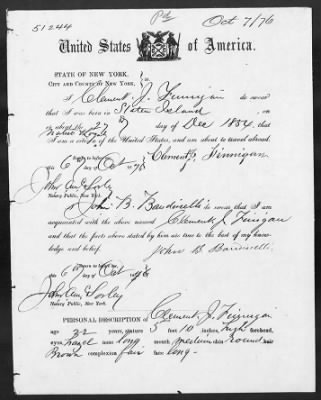 51244 Pd Oct 7/76
United States of America.
STATE OF NEW YORK,
CITY AND COUNTY OF NEW YORK, } ss.
I Clement J. Finnigan do swear
that I was born in Staten Island
on about the 27 day of Dec 1854 that
I am a citizen of the United States, and am about to travel abroad.
Sworn to before me
this 6 day of Oct 1876 Clement J. Finnigan
Notary Public, New York.
John B. Bandinelli do swear that I am
acquainted with the above named Clement J Finnigan
and that the facts above stated by him are true to the best of my know-
ledge and belief.
John B. Bandinelli
Sworn to before me
this 6 day of Oct 1876
Notary Public, New York.
PERSONAL DESCRIPTION OF Clement J. Finnigan
age 22 years, stature 5 feet 10 inches, high forehead,
eyes, hazel nose long mouth medium chin round hair
Brown complexion fair face long